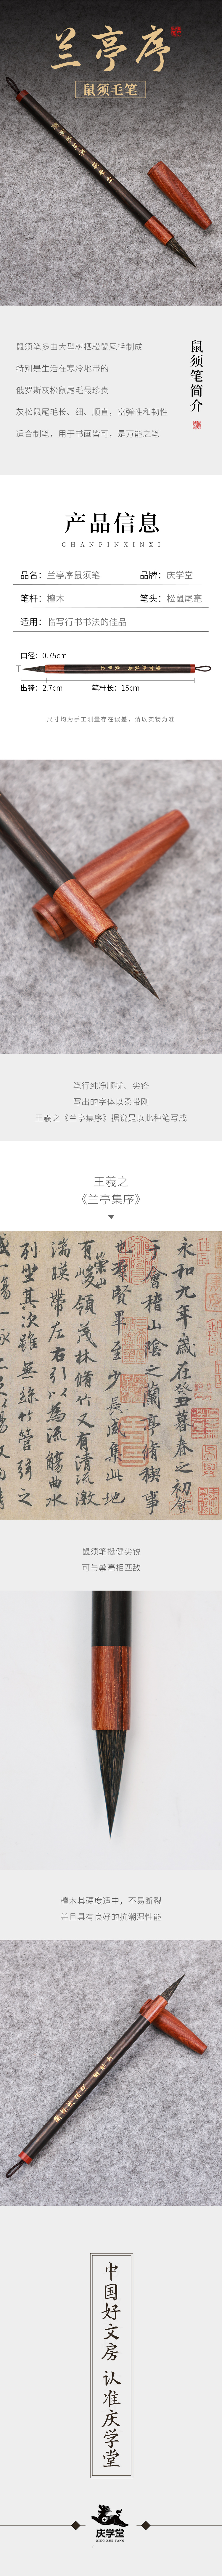 兰亭序
鼠须毛笔
鼠须笔简介
鼠须笔多由大型树栖松鼠尾毛制成
特别是生活在寒冷地带的
俄罗斯灰松鼠尾毛最珍贵
灰松鼠尾毛长、细、顺直，富弹性和韧性
适合制笔，用于书画皆可，是万能之笔
产品信息
CHANPINXINXI
品名：兰亭序鼠须笔
品牌：庆学堂
笔杆：檀木
笔头：松鼠尾毫
适用：临写行书书法的佳品
口径：0.75cm
出锋：2.7cm
笔杆长：15cm
尺寸均为手工测量存在误差，请以实物为准
笔行纯净顺扰、尖锋
写出的字体以柔带刚
王羲之《兰亭集序》据说是以此种笔写成
王羲之
《兰亭集序》
永和九年歲在癸丑暮春之初會
于會稽山陰之蘭亭脩稧事
也羣賢畢至少長咸集此地
有崇山峻領茂林脩竹又有清流激
湍暎帶左右引以為流觴曲水
列坐其次雖無絲竹管弦之
鼠须笔挺健尖锐
可与鬃毫相匹敌
檀木其硬度适中，不易断裂
并且具有良好的抗潮湿性能
中国好文房 认准庆学堂
庆学堂
QING XUE TANG